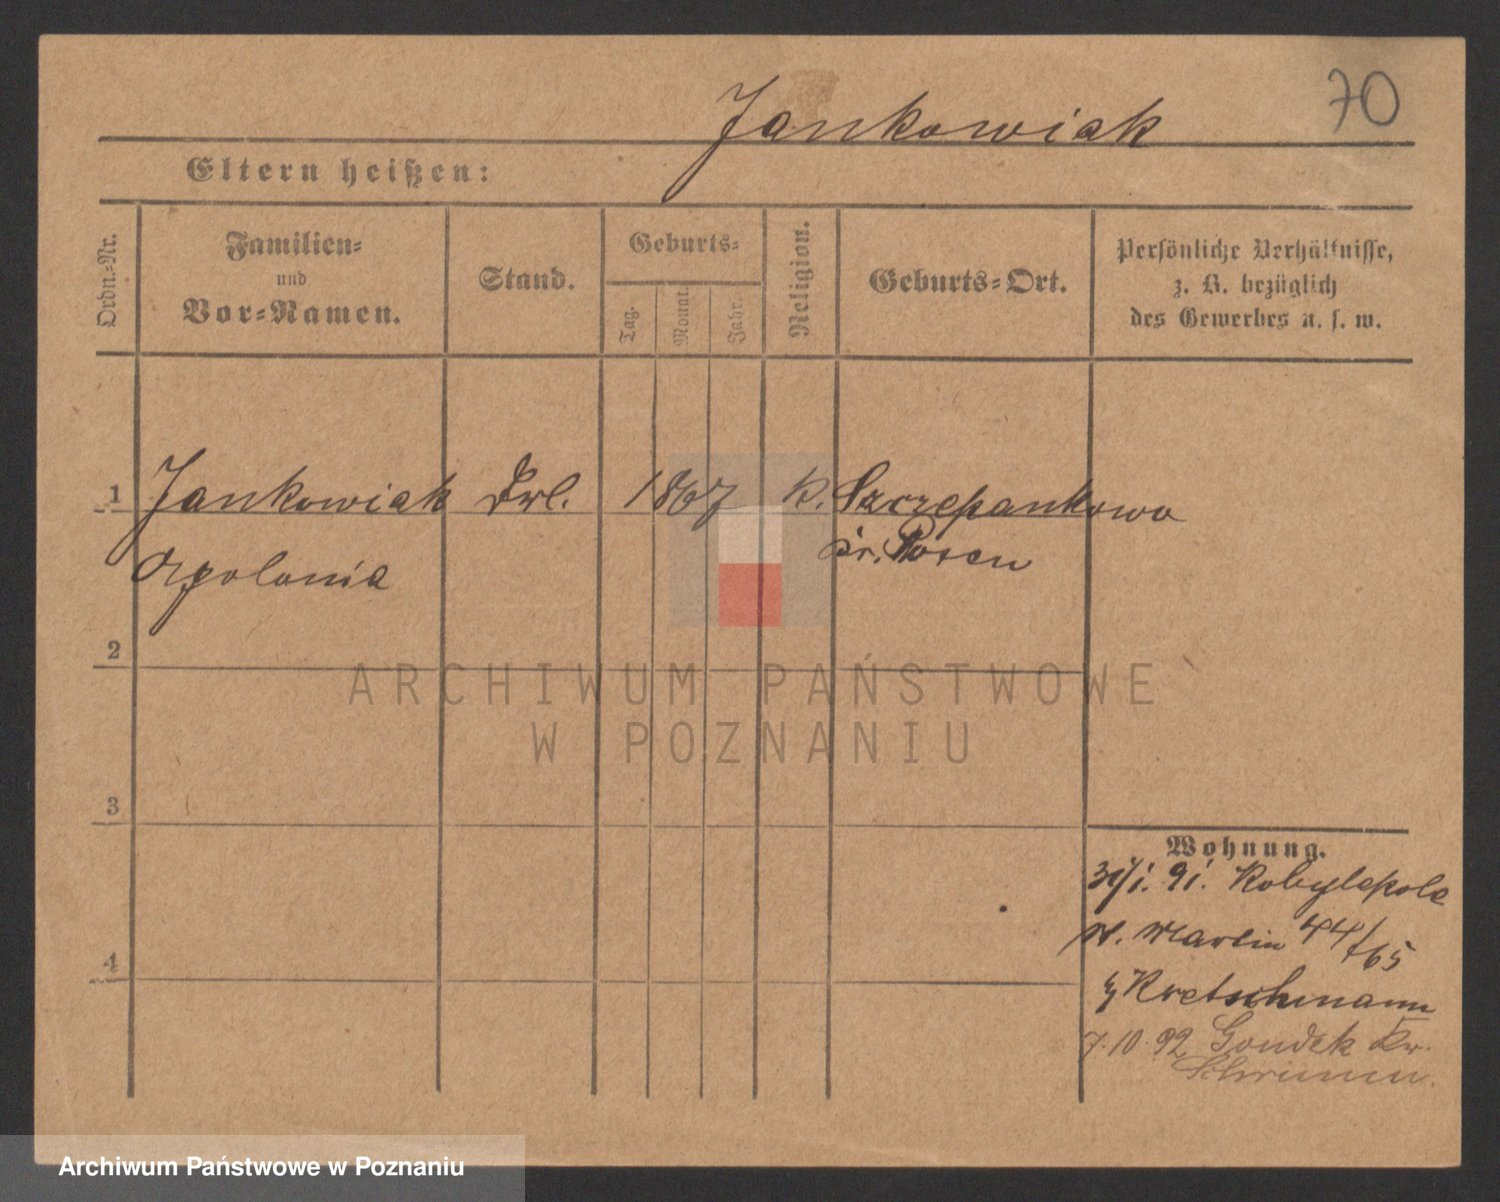 70
Jankowiak
Eltern heißen:
Ordn.-Nr.
Familien-
und
Vor-Namen.
Stand.
Geburts-
Tag.
Monat.
Jahr.
Religion.
Geburts-Ort.
Persönliche Verhältnisse,
z. B. bezüglich
des Gewerbes u. s. w.
1 Jankowiak Frl. 1867 K. Szczepankowo
Apolonia Kr. Posen
2
ARCHIWUM PAŃSTWOWE
W POZNANIU
3
Wohnung.
91. Kobylepole
St. Martin 44/65
Kretschmann
4
7.10.92 Gondek Kr.
Schrimm.
Archiwum Państwowe w Poznaniu